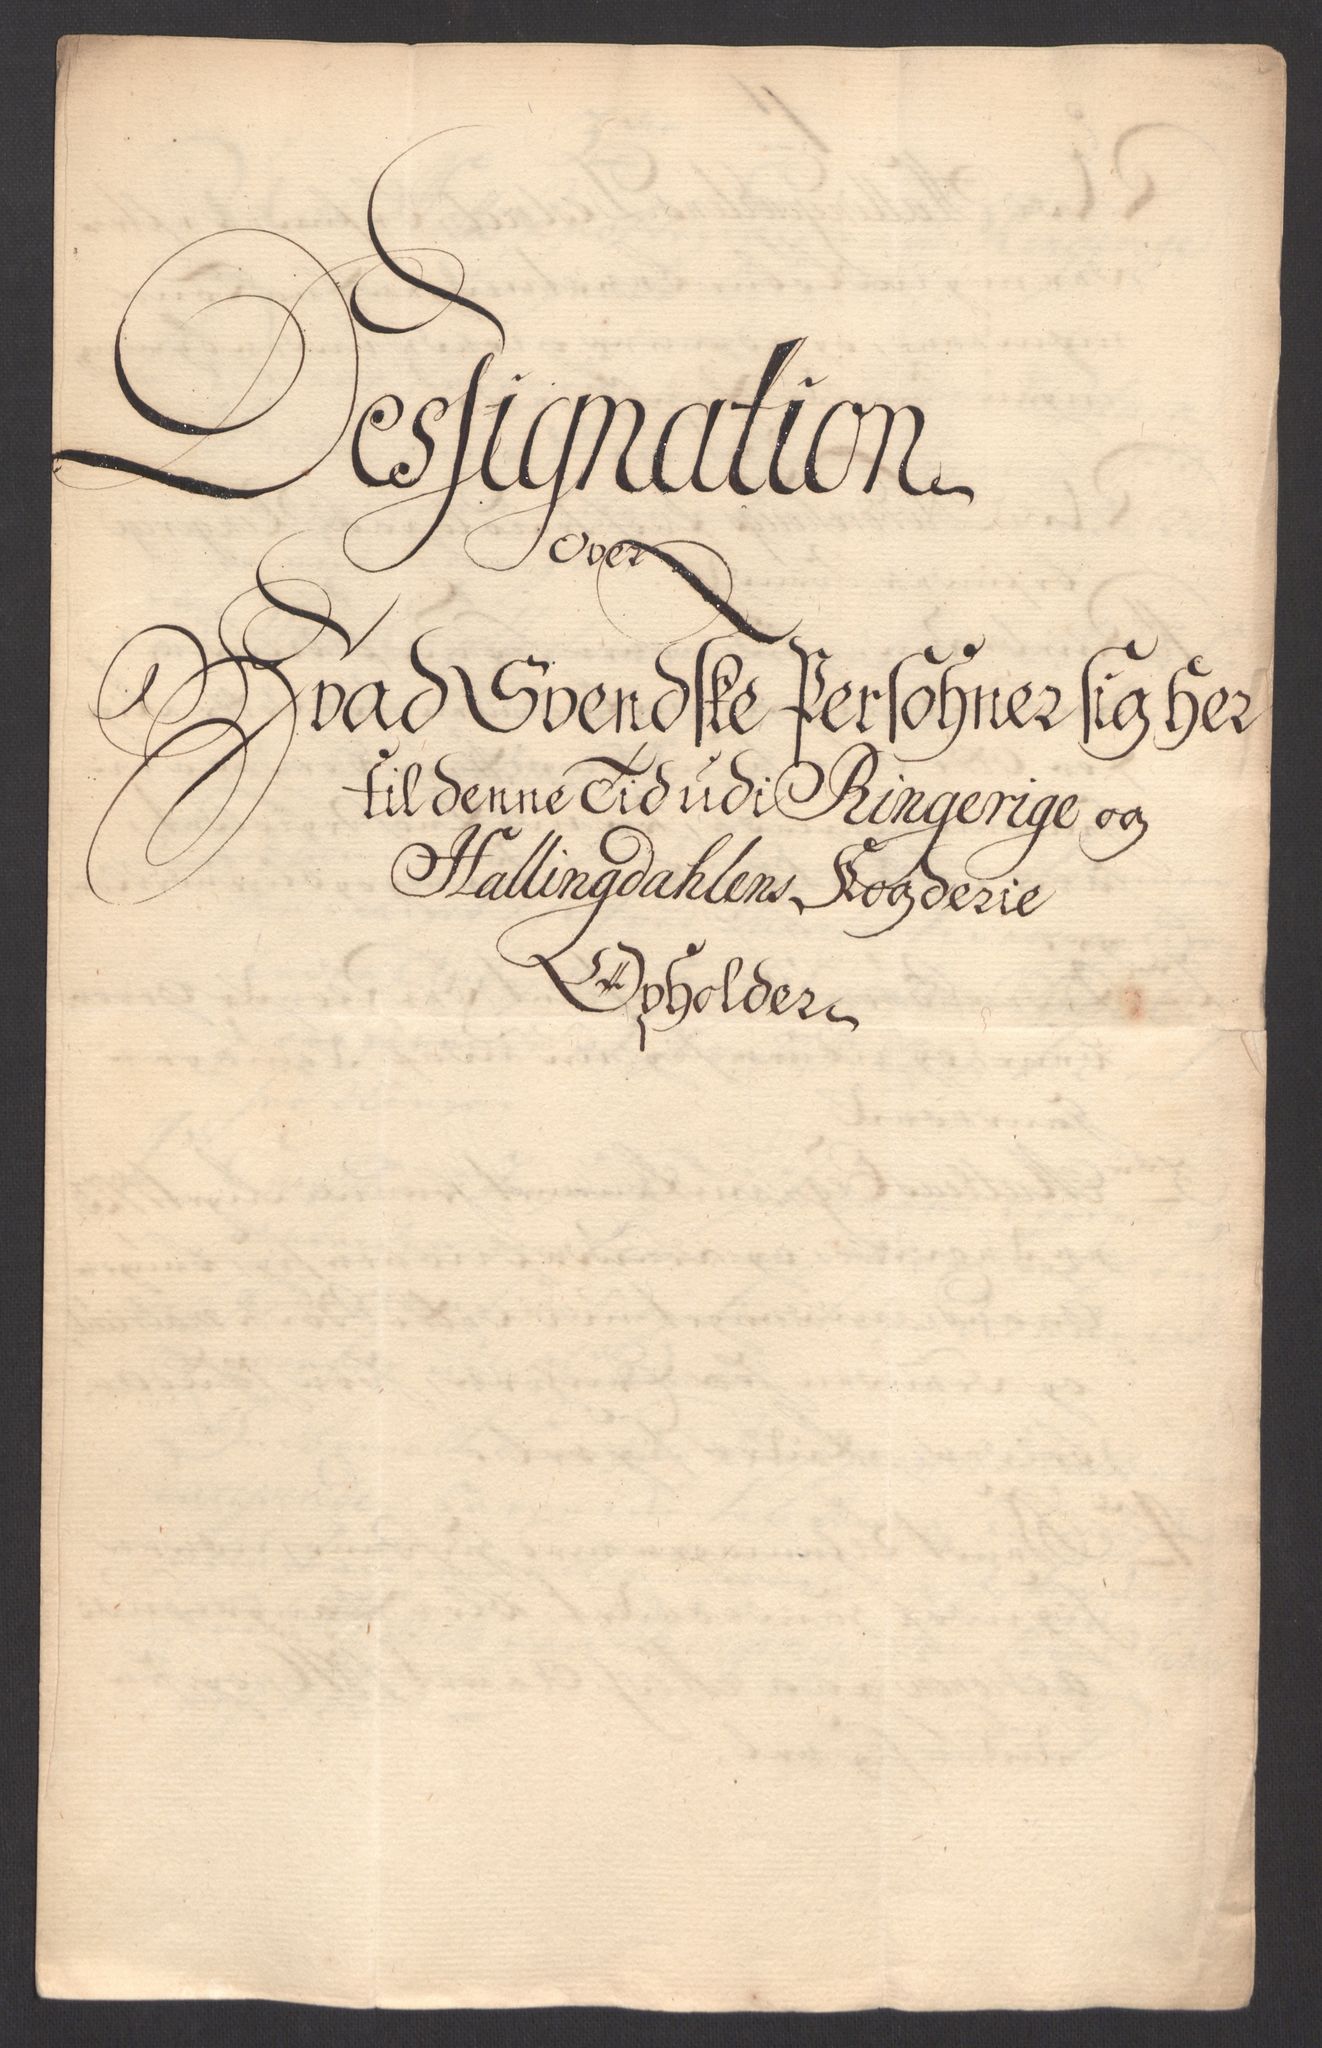 Dessignation
Over
Hvad Svendske Persohner sig her
til denne Tid udi Ringerige og
Hallingdahlens Fogderie
Opholder